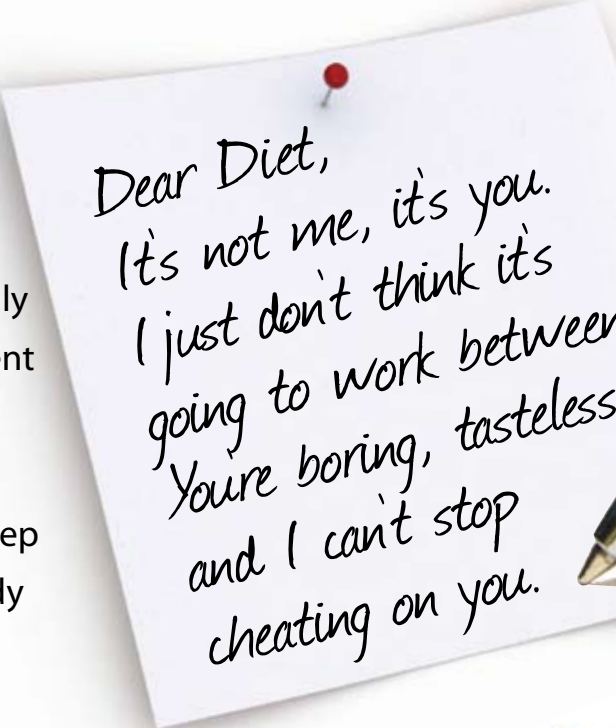 Dear Diet,
It's not me, it's you.
I just don't think it's
going to work between
You're boring, tasteless
and I can't stop
cheating on you.
ly
ent
ep
dy